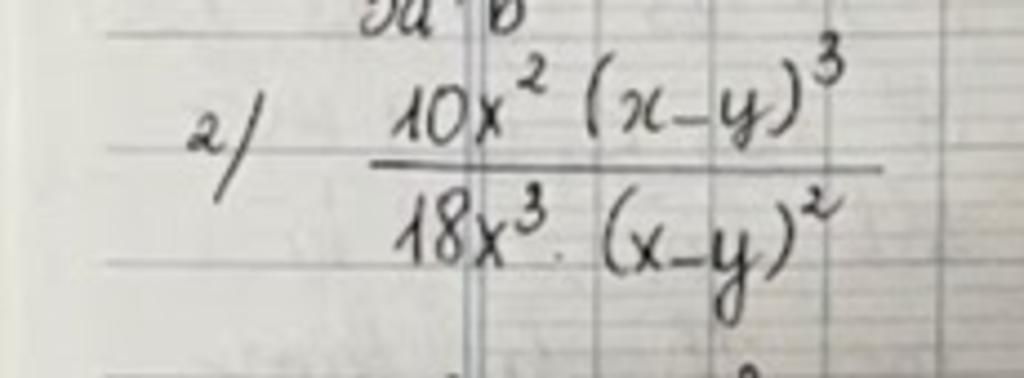 2/ 10x² (x-y)³
18x³ · (x-y)²